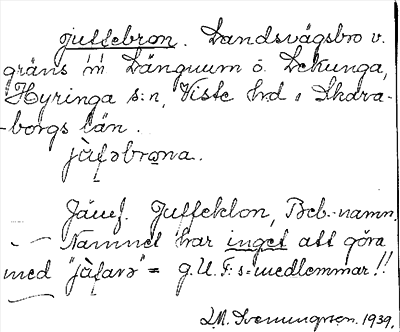 juffebron. Landsvägsbro v.
gräns m Länguum o. Lekunga,
Hyringa s:n, Viste hd i Skara-
-borgs län.
jùfəbrona.
Jämf. Juffeklon, Beb.-namn.
Namnet har inget att göra
med "jùfarə" = g.U.F:s-medlemmar!!
1939.